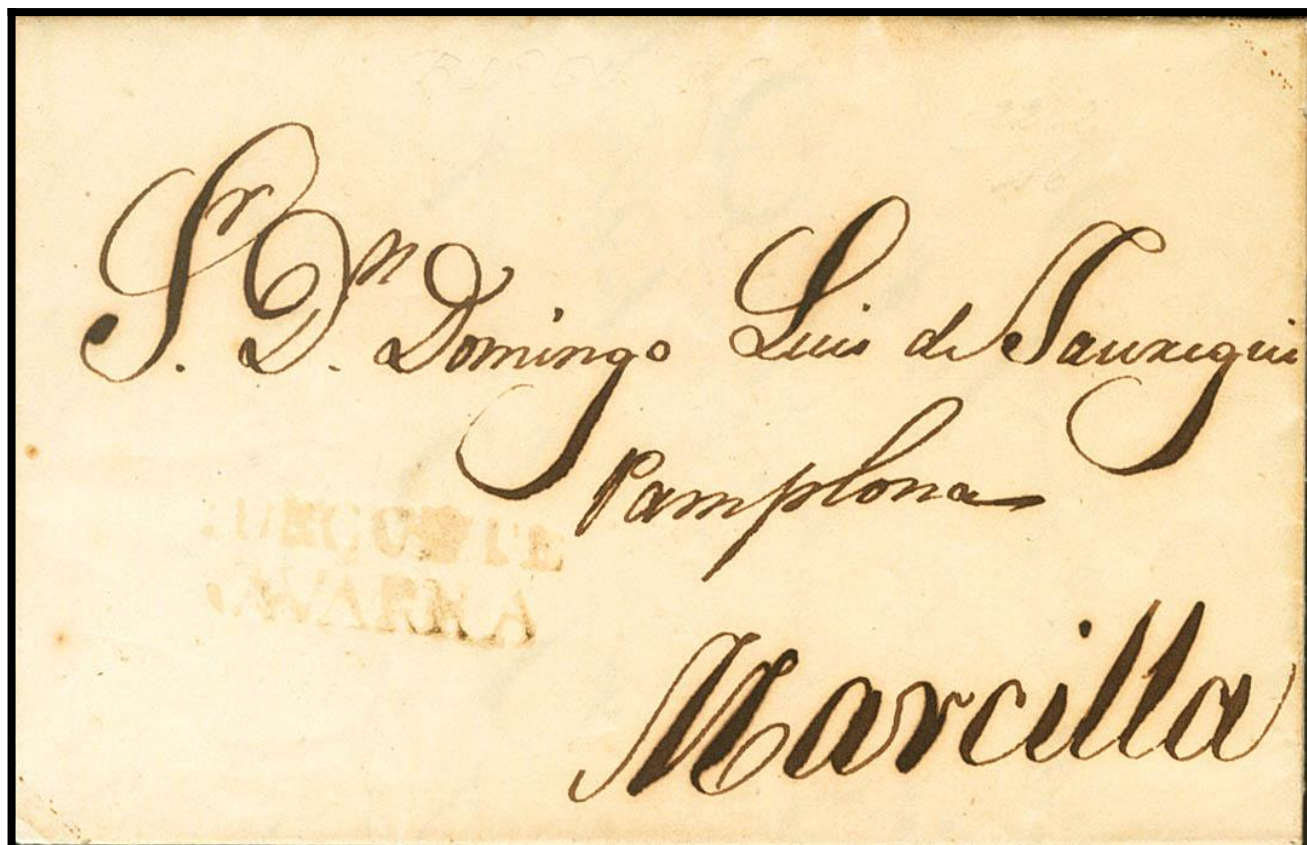 Sr. Dn. Domingo Luis de Jauregui
Pamplona
NAVARRA
Marcilla